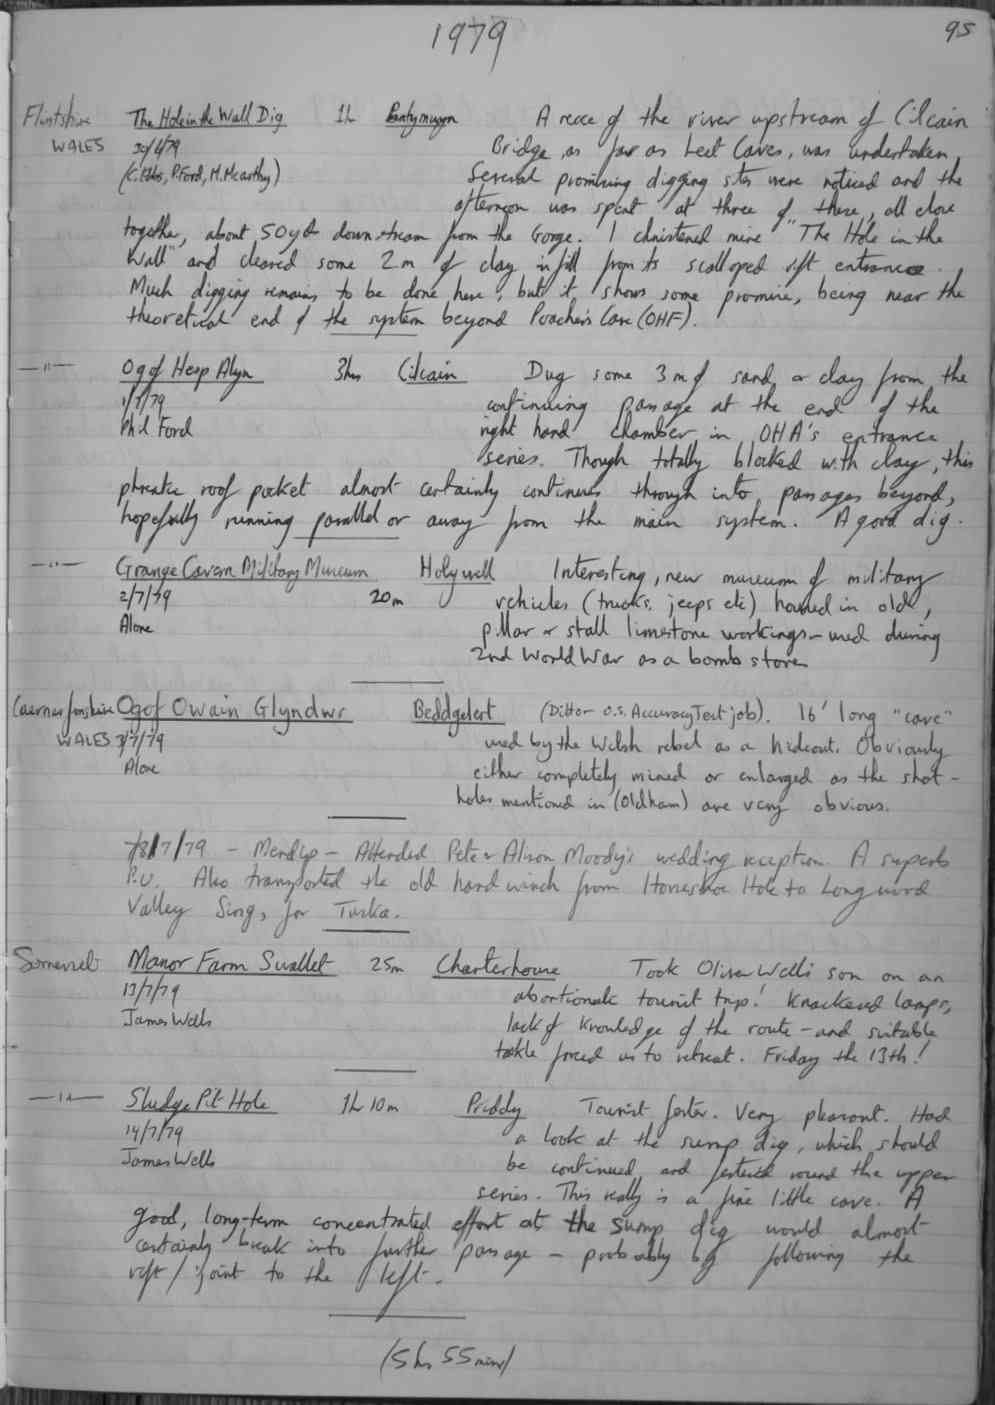 1979
95
Flintshire The Hole in the Wall Dig 1h Pantymwyn A recce of the river upstream of Cilcain
WALES 30/6/79 Bridge, as far as Leet Caves, was undertaken.
(C. Ebbs, P. Ford, M. McCarthy) Several promising digging sites were noticed and the
afternoon was spent at three of these, all close
together, about 50yds downstream from the Gorge. I christened mine "The Hole in the
Wall" and cleared some 2m of clay infill from its scalloped rift entrance.
Much digging remains to be done here, but it shows some promise, being near the
theoretical end of the system beyond Poachers Cave (OHF).
—"— Ogof Hesp Alyn 3hrs Cilcain Dug some 3m of sand & clay from the
1/7/79 continuing passage at the end of the
Phil Ford right hand chamber in OHA's entrance
series. Though totally blocked with clay, this
phreatic roof pocket almost certainly continues through into passages beyond,
hopefully running parallel or away from the main system. A good dig.
—"— Grange Cavern Military Museum Holywell Interesting, new museum of military
2/7/79 20m vehicles (trucks, jeeps etc) housed in old,
Alone pillar & stall limestone workings - used during
2nd World War as a bomb store
Caernarfonshire Ogof Owain Glyndwr Beddgelert (Ditto - O.S. Accuracy Test job). 16' long "cave"
WALES 3/7/79 used by the Welsh rebel as a hideout. Obviously
Alone either completely mined or enlarged as the shot-
holes mentioned in (Oldham) are very obvious.
7/8/7/79 - Mendip - Attended Pete & Alison Moody's wedding reception. A superb
P.U. Also transported the old hand winch from Horseshoe Hole to Longwood
Valley Sink, for Tuska.
Somerset Manor Farm Swallet 25m Charterhouse Took Oliver Wells son on an
13/7/79 abortionate tourist trip! Knackered lamps,
James Wells lack of knowledge of the route - and suitable
tackle forced us to retreat. Friday the 13th!
—"— Sludge Pit Hole 1h 10m Priddy Tourist fester. Very pleasant. Had
14/7/79 a look at the sump dig, which should
James Wells be continued, and festered round the upper
series. This really is a fine little cave. A
good, long-term concentrated effort at the sump dig would almost
certainly break into further passage - probably by following the
rift / joint to the left.
(5hrs 55mins)